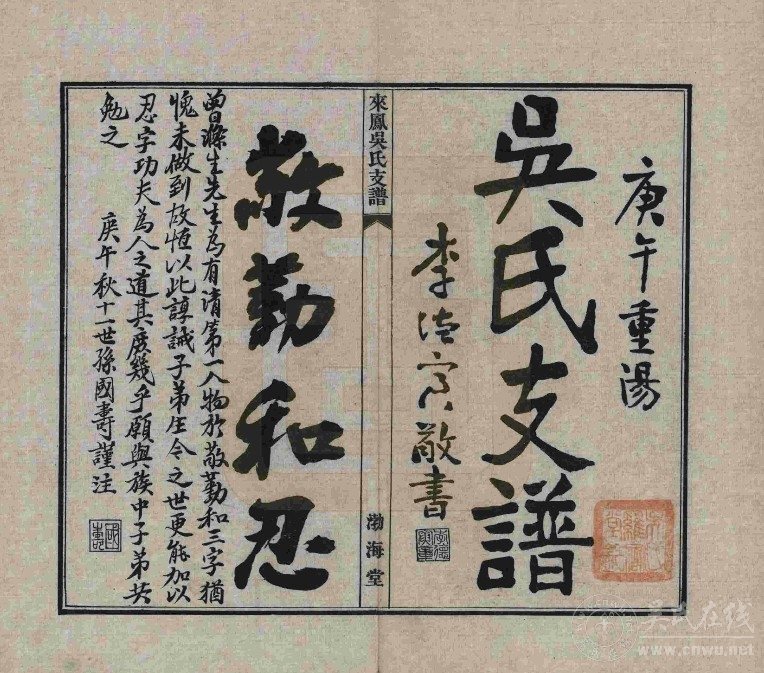 庚午重陽
吳氏支譜
李
敬書
來鳳吳氏支譜
渤海堂
敬勤和忍
曾滌生先生為有清第一人物於敬勤和三字猶
愧未做到故恆以此諄誡子弟生今之世更能加以
忍字功夫為人之道其庶幾乎願與族中子弟共
勉之
庚午秋十一世孫國壽謹注
國壽
吴氏在线
www.cnwu.net